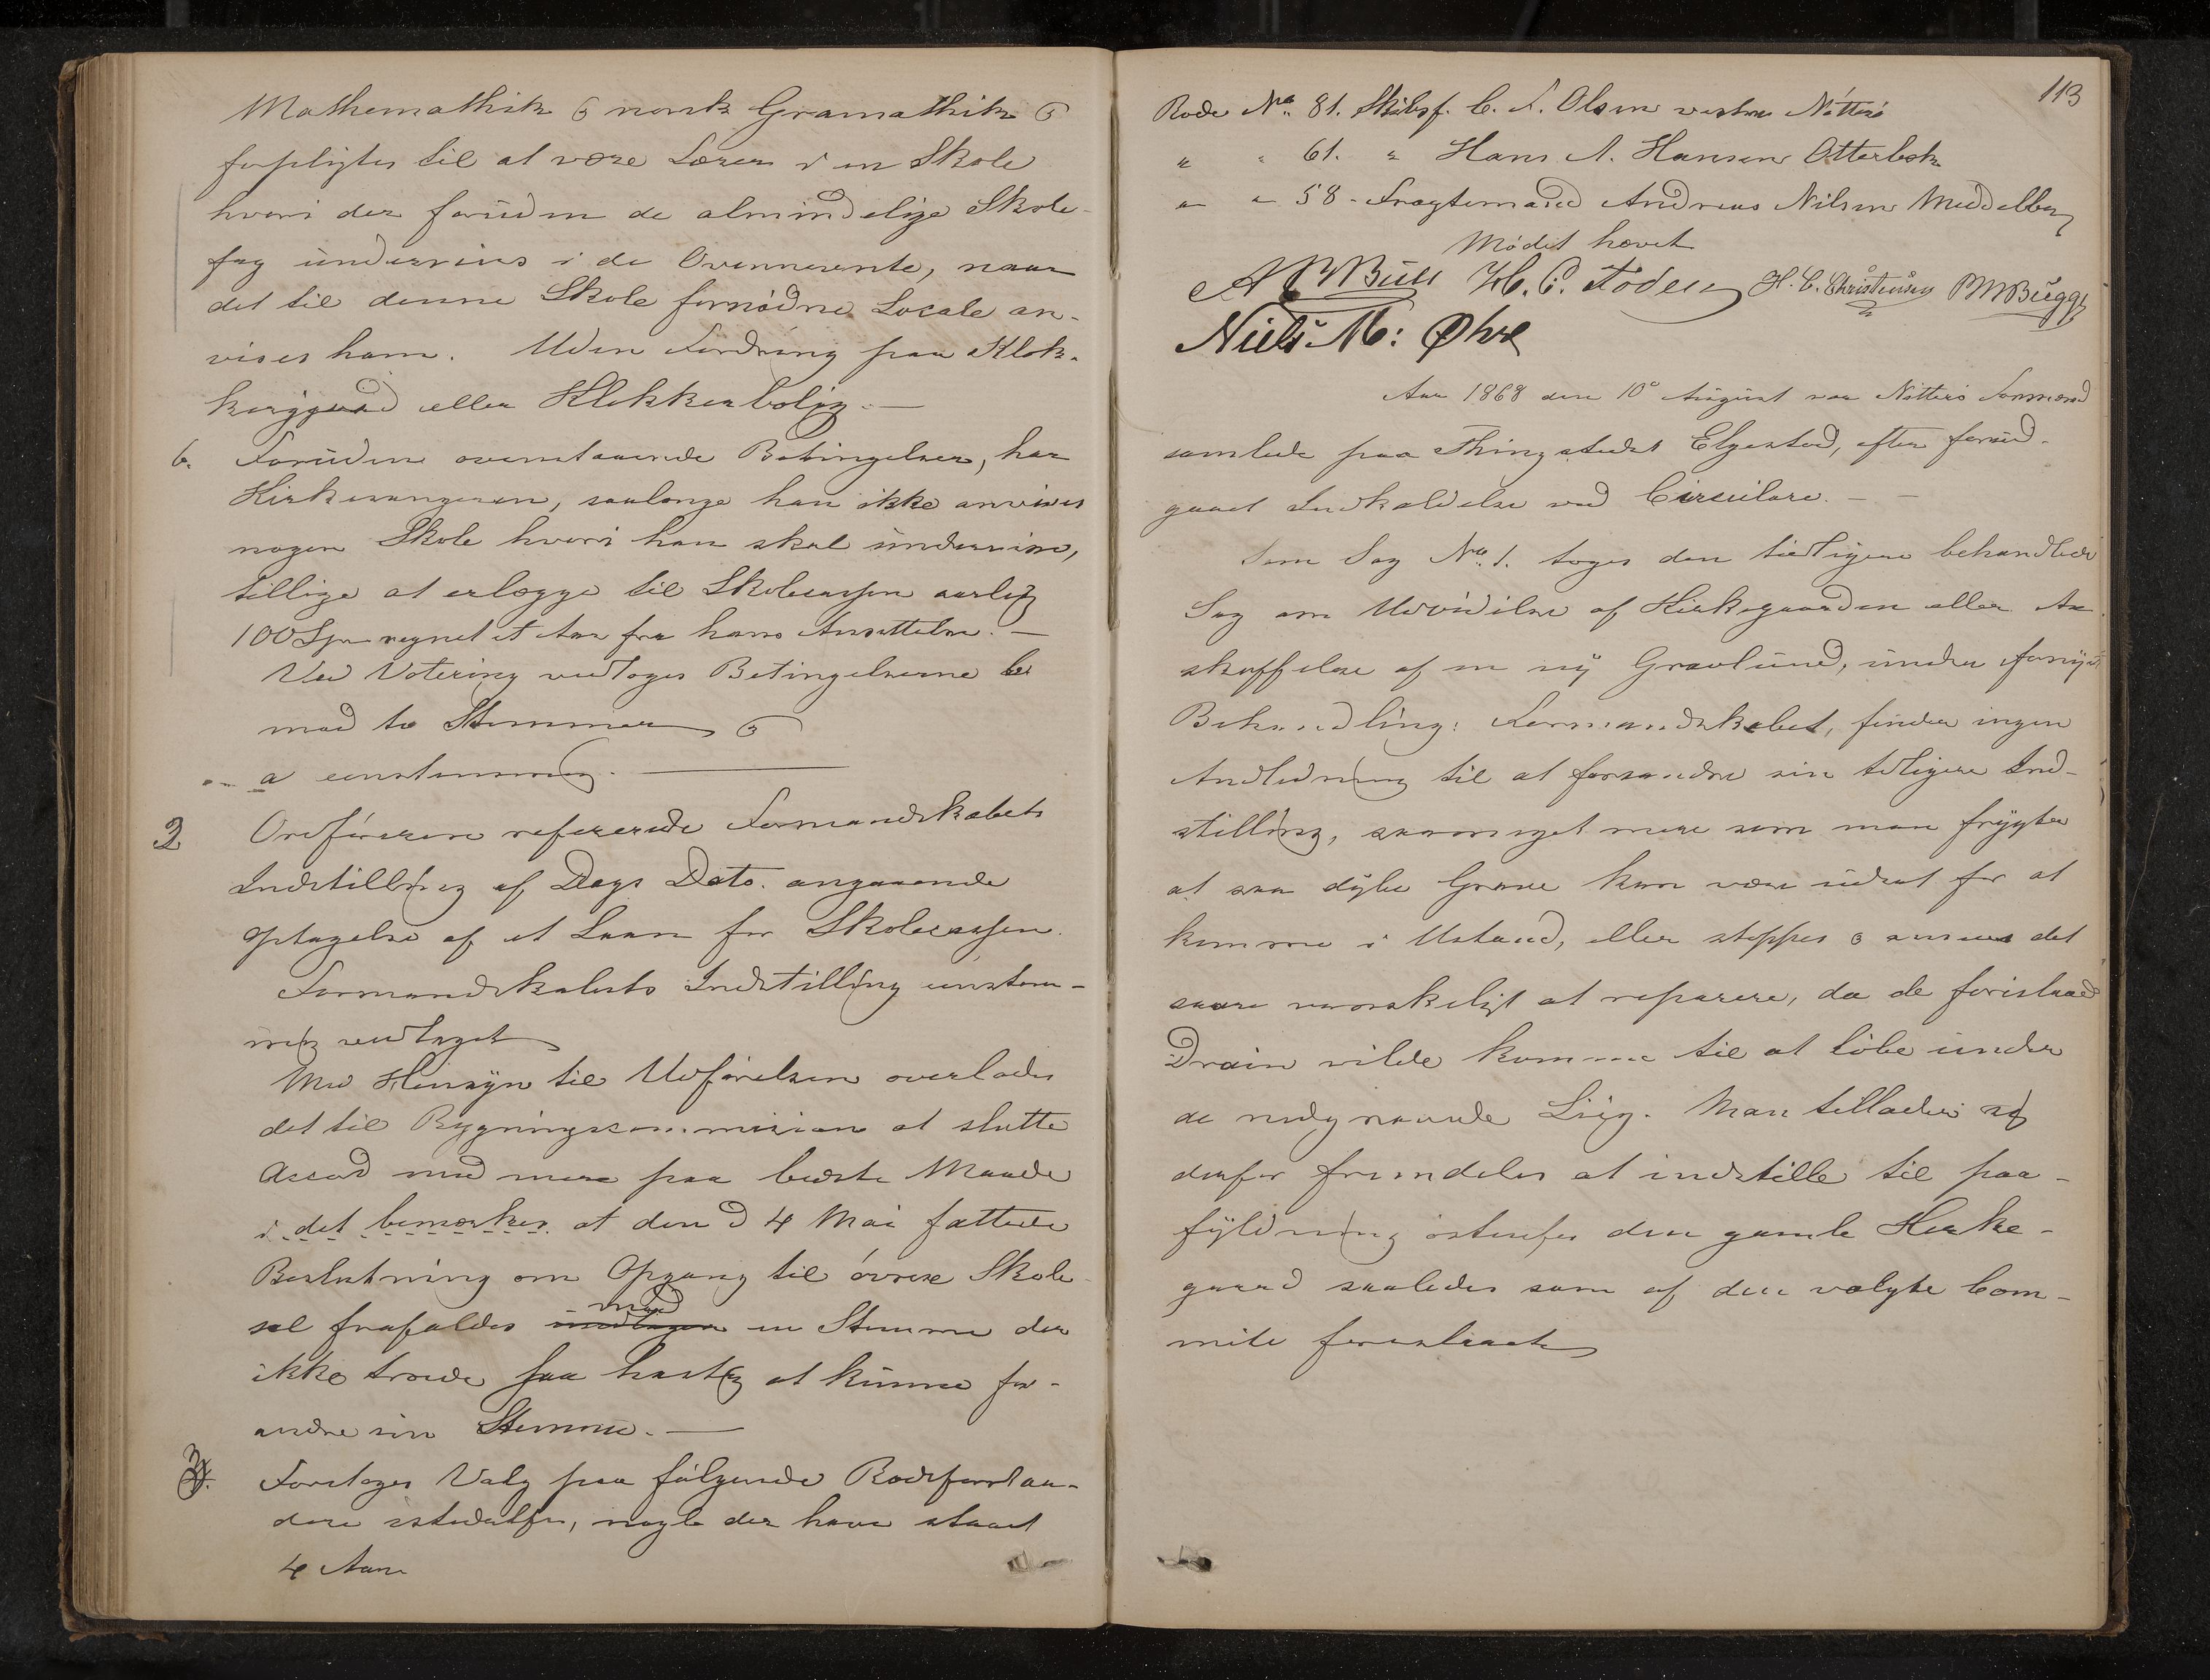 Mathemathik & norsk Gramathik &
forpligtes til at være Lærer i en Skole
hvori der foruden de almindelige Skole-
fag undervises i de Ovennevnte, naar
det til denne Skole fornødne Locale an-
vises ham. Uden Fordring paa Klok-
kergaard eller Klokkerbolig. —
b. Foruden ovenstaaende Betingelser, har
Kirkesangeren, saalænge han ikke anvises
nogen Skole hvori han skal undervise,
tillige at erlægge til Skolecassen aarlig
100 Spr regnet et Aar fra hans Ansettelse. —
Ved Votering vedtoges Betingelserne b
mod to Stemmer &
a eenstemmig. —
2 Ordføreren refererede Formandskabets
Indstilling af Dags Dato angaaende
Optagelse af et Laan for Skolecassen.
Formandskabets Indstilling eenstem-
mig vedtaget
Med Hensyn til Udførelsen overlades
det til Bygningscommision at slutte
Accord med mere paa bedste Maade
i det bemærkes at den d 4 Mai fattede
Beslutning om Opgang til øvre Skole-
sal frafaldes mod en Stemme der
ikke troede saa hastig at kunne for-
andre sin Stemme. —
3. Foretoges Valg paa følgende Rodeforstan-
dere istedetfor, nogle der have staaet
4 Aar
113
Rode No. 81. Skibsf. C. F. Olsen vestre Nøtterø
" " 61. " Hans A. Hansen Otterbek
" " 58 - Fragtemand Andreas Nilsen Meddelborg
Mødet hævet
A Bull H. C. Foden H. C. Christensen Bugge
Niels M: Øhre
Aar 1868 den 10de August var Nøtterø Formænd
samlede paa Thingstedet Elgestad, efter forud-
gaaet Indkaldelse ved Circulære. — —
Som Sag No. 1. toges den tidligere behandlede
Sag om Udvidelse af Kirkegaarden eller An
skaffelse af en ny Gravlund, under fornyet
Behandling: Formandskabet, finder ingen
Anledning til at forandre sin tidligere Ind-
stilling, saameget mere som man frygter
at saa dybe Grøve kan være udsat for at
komme i Ustand, eller stoppes & ansees det
saare vanskeligt at reparere, da de foreslaaede
Drain vilde komme til at løbe under
de nedgravede Liig. Man tillader sig
derfor fremdeles at indstille til paa-
fyldning østenfor den gamle Kirke-
gaard saaledes som af den valgte Com-
mite foreslaaet